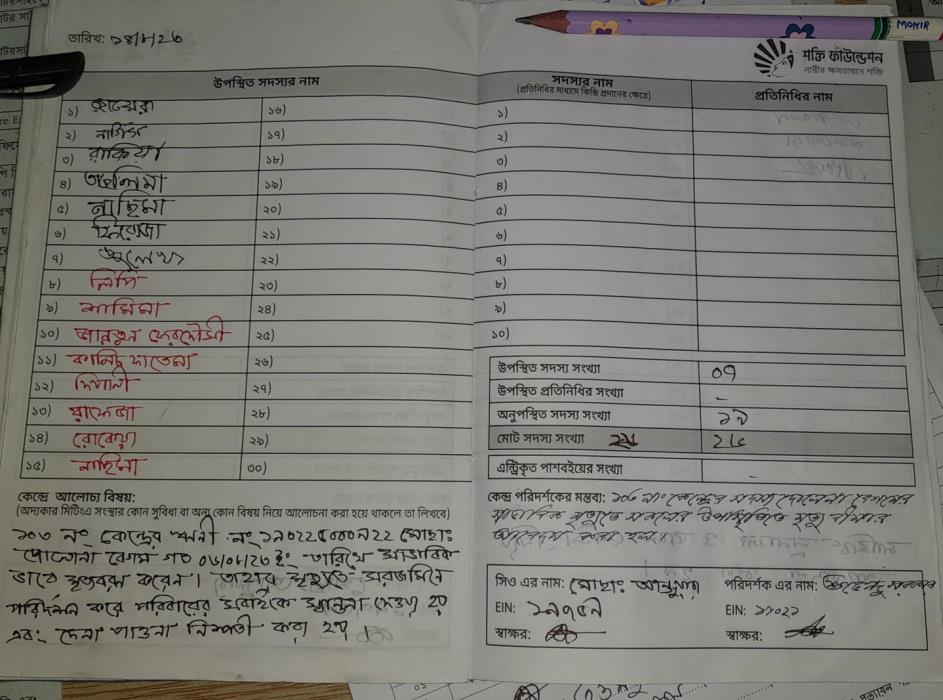 MONIR
তারিখ: ২৪/৮/২৬
শক্তি ফাউন্ডেশন
নারীর ক্ষমতায়নে শক্তি
উপস্থিত সদস্যর নাম
১)
১৬)
২) নার্গিস
১৭)
৩) রাকিয়া
১৮)
৪) তাছলিমা
১৯)
৫) নাছিমা
২০)
৬) ফিরোজা
২১)
৭) জুলেখা
২২)
৮) লিপি
২৩)
৯) শামিমা
২৪)
১০) জান্নতুন ফেরদৌসী
২৫)
১১) কানিছ ফাতেমা
২৬)
১২) দিপালী
২৭)
১৩) রাফেজা
২৮)
১৪) রোকেয়া
২৯)
১৫) নাছিমা
৩০)
কেন্দ্রে আলোচ্য বিষয়:
(অদ্যকার মিটিংএ সংস্থার কোন সুবিধা বা অন্য কোন বিষয় নিয়ে আলোচনা করা হয়ে থাকলে তা লিখবে)
১০৩ নং কেন্দ্রের নং মোছাঃ
বেগম গত ইং তারিখে স্বাভাবিক
ভাবে মৃত্যবরন করেন। তাহার মৃত্যুতে সরজমিনে
পরিদর্শন করে পরিবারের সবাইকে সান্তনা দেওয়া হয়
এবং দেনা পাওনা নিষ্পত্তী করা হয়।
সদস্যর নাম
(প্রতিনিধির মাধ্যমে কিস্তি প্রদানের ক্ষেত্রে)
প্রতিনিধির নাম
১)
২)
৩)
৪)
৫)
৬)
৭)
৮)
৯)
১০)
উপস্থিত সদস্য সংখ্যা ০৭
উপস্থিত প্রতিনিধির সংখ্যা -
অনুপস্থিত সদস্য সংখ্যা ১৯
মোট সদস্য সংখ্যা ২৬
এন্ট্রিকৃত পাশবইয়ের সংখ্যা -
কেন্দ্র পরিদর্শকের মন্তব্য: নং কেন্দ্রের সদস্য বেগমের
স্বাভাবিক মৃত্যুতে সকলের উপস্থিতিতে মৃত্যু বীমার
আবেদন করা হল।
সিও এর নাম: মোছাঃ
পরিদর্শক এর নাম:
EIN: ১৯৭৫৭
EIN: ১১০২২
স্বাক্ষর:
স্বাক্ষর: